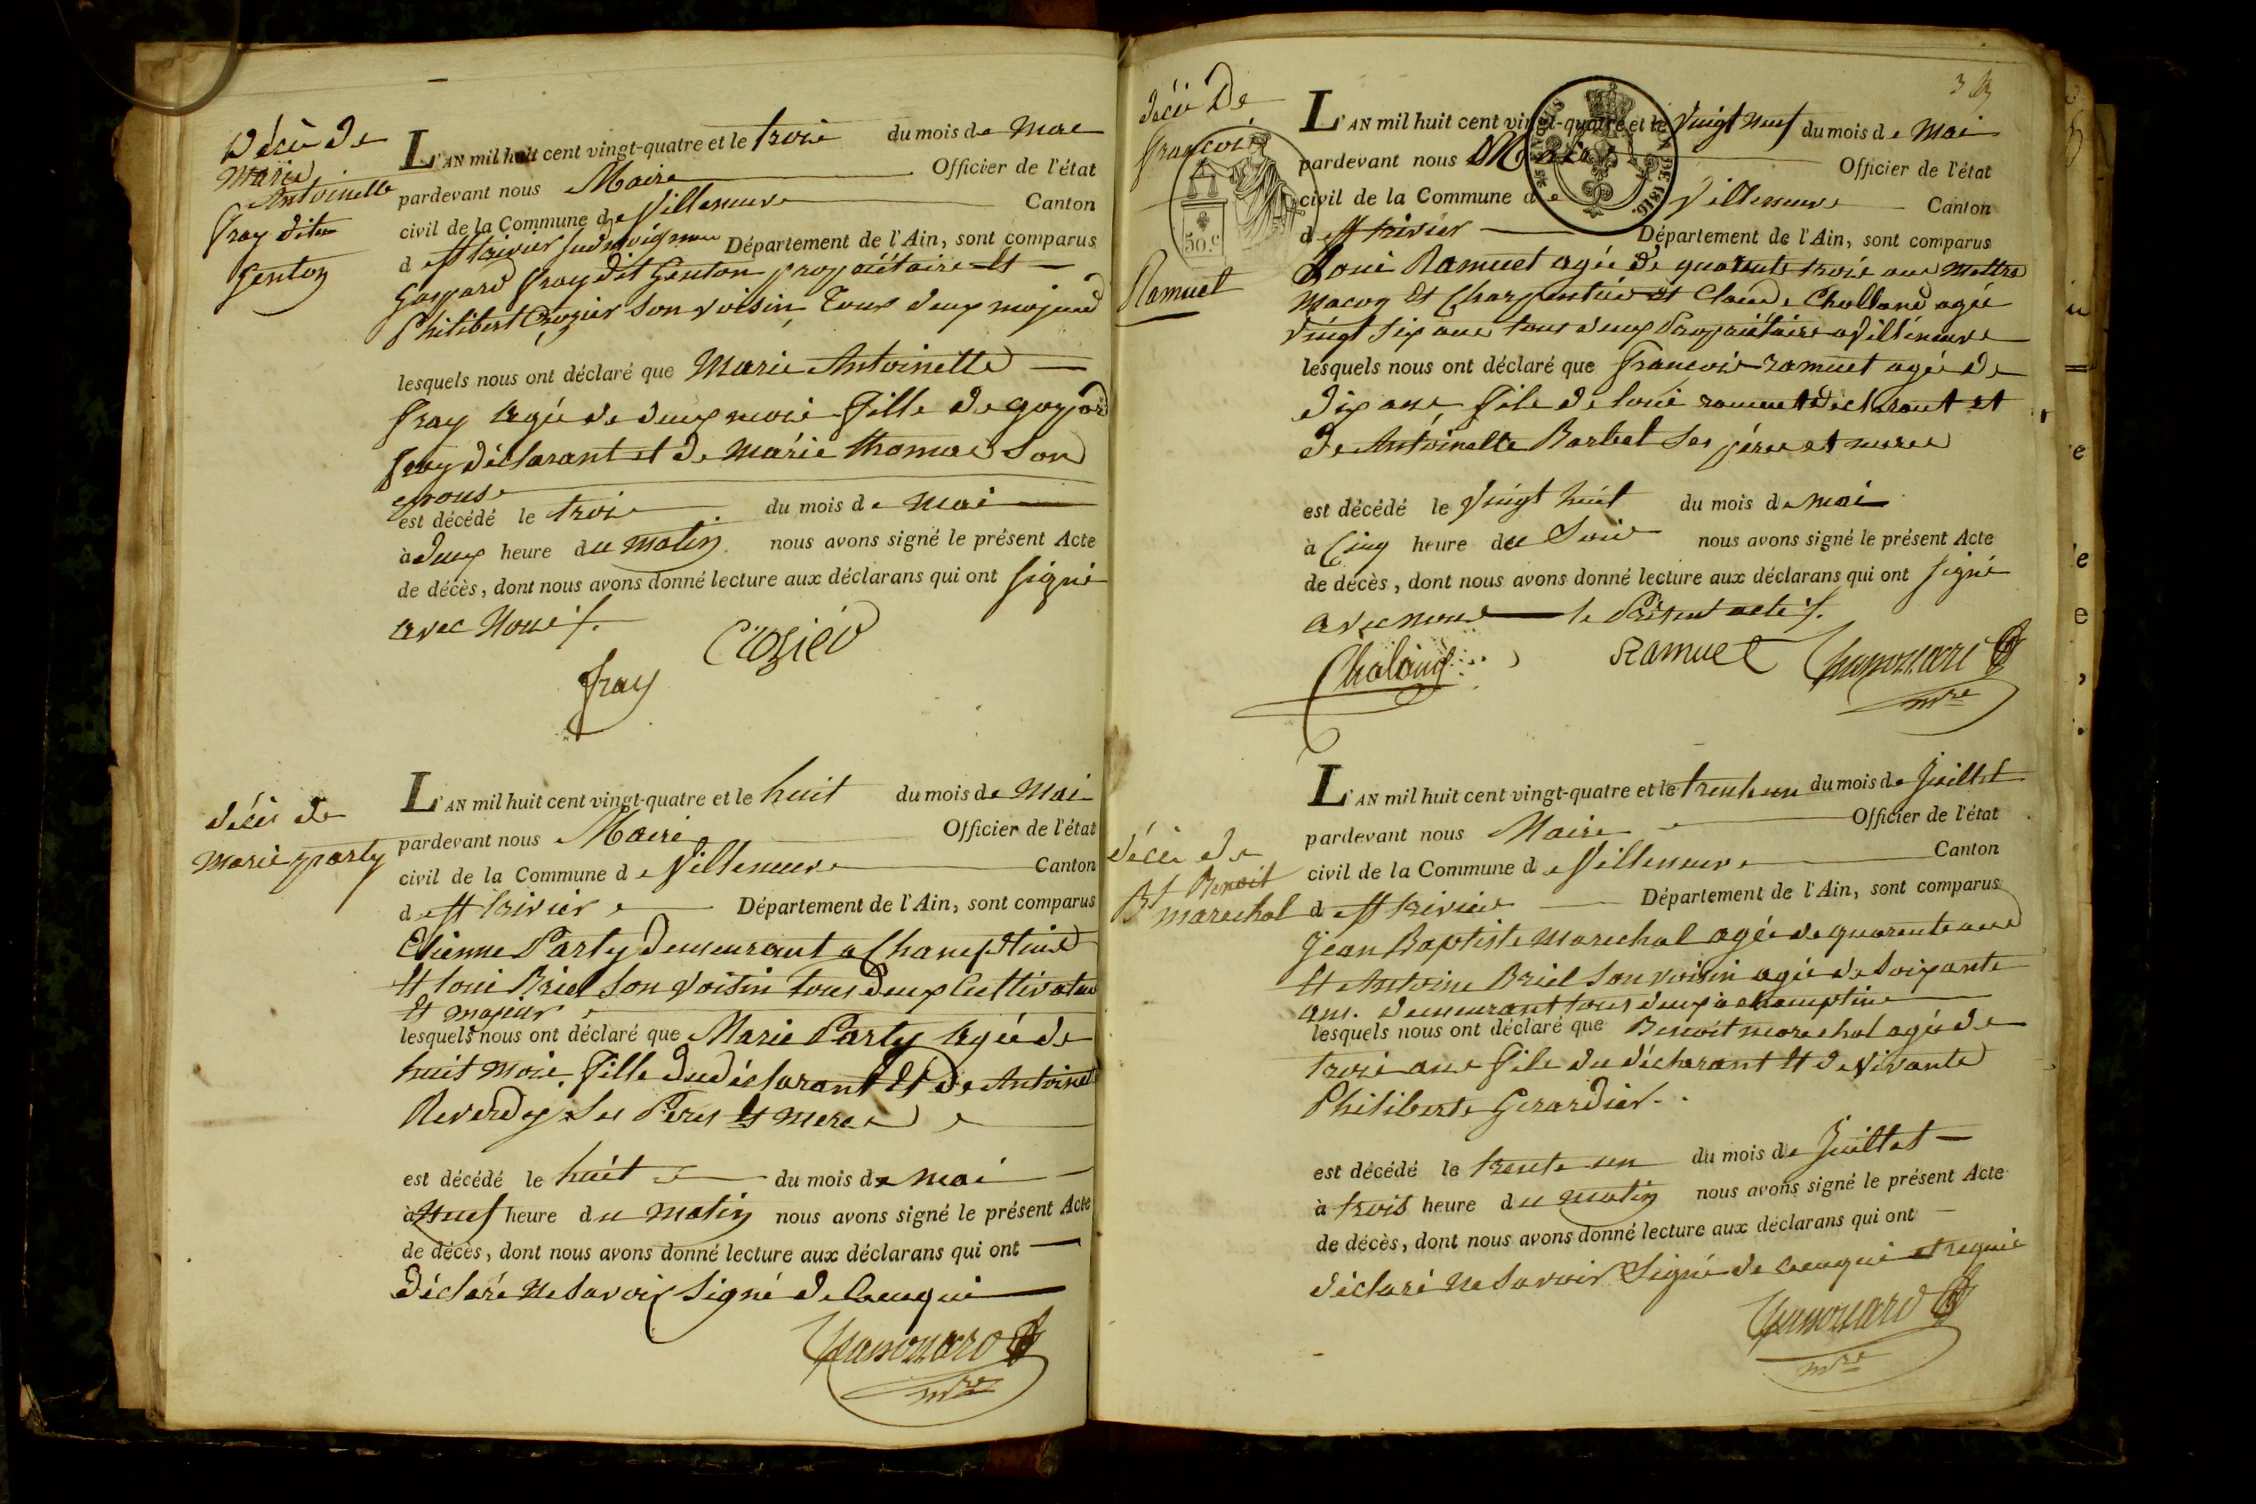 Décès de
Marie
Antoinette
fray dit
Genton
L'AN mil huit cent vingt-quatre et le trois du mois de Mai
pardevant nous Maire Officier de l'état
civil de la Commune de Villeneuve Canton
de St trivier Département de l'Ain, sont comparus
Gaspard fray dit Genton propriétaire Et
Philibert Crozier son voisin, Tous deux majeurs
lesquels nous ont déclaré que Marie Antoinette
fray agée de deux mois fille de gaspard
fray déclarant et de Marie thomas son
epouse
est décédé le trois du mois de mai
à deux heure du matin nous avons signé le présent Acte
de décès, dont nous avons donné lecture aux déclarans qui ont signé
avec Nous
Crozier
fray
décès de
Marie party
L'AN mil huit cent vingt-quatre et le huit du mois de Mai
pardevant nous Maire Officier de l'état
civil de la Commune de Villeneuve Canton
de St trivier Département de l'Ain, sont comparus
Etienne Party demeurant a
Et loui Briel son voisin tous deux Cultivateur
Et majeur
lesquels nous ont déclaré que Marie Party agée de
huit mois fille du déclarant Et De Antoinette
Reverdy ses Peres Et meres
est décédé le huit du mois de mai
à Neuf heure du matin nous avons signé le présent Acte
de décès, dont nous avons donné lecture aux déclarans qui ont
déclaré ne savoir signé de ce requi
mre
39
décès De
francois
Ramuet
50 c.
L'AN mil huit cent vingt-quatre et le vingt neuf du mois de Mai
pardevant nous Maire Officier de l'état
civil de la Commune de Villeneuve Canton
de St trivier Département de l'Ain, sont comparus
Loui Ramuet agée de quarente trois ans mettre
macon Et Charpentier Et Claude Challand agée
vingt six ans tous deux Propriétaire a Villeneuve
lesquels nous ont déclaré que francois ramuet agée de
dix ans, fils de loui ramuet déclarant et
de Antoinette Barbet ses pères et meres
est décédé le vingt huit du mois de mai
à Cinq heure du Soir nous avons signé le présent Acte
de décès, dont nous avons donné lecture aux déclarans qui ont signé
avec nous le Présent acte
Ramuet
mre
décès de
Bt Benoit
marechal
L'AN mil huit cent vingt-quatre et le trente un du mois de Juillet
pardevant nous Maire Officier de l'état
civil de la Commune de Villeneuve Canton
de St trivier Département de l'Ain, sont comparus
Jean Baptiste Marechal agée de quarente ans
Et Antoine Briel son voisin agée de soixante
ans. demeurant tous deux a
lesquels nous ont déclaré que Benoit marechal agée de
trois ans fils du déclarant Et de vivante
Philiberte Gerardier
est décédé le trente un du mois de Juillet
à trois heure du matin nous avons signé le présent Acte
de décès, dont nous avons donné lecture aux déclarans qui ont
déclaré ne savoir signé de ce requi et requis
mre